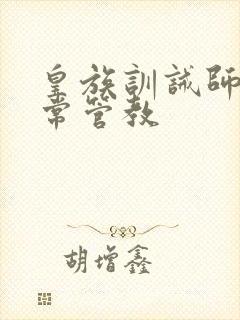 皇族訓誡師
常管教
胡增鑫